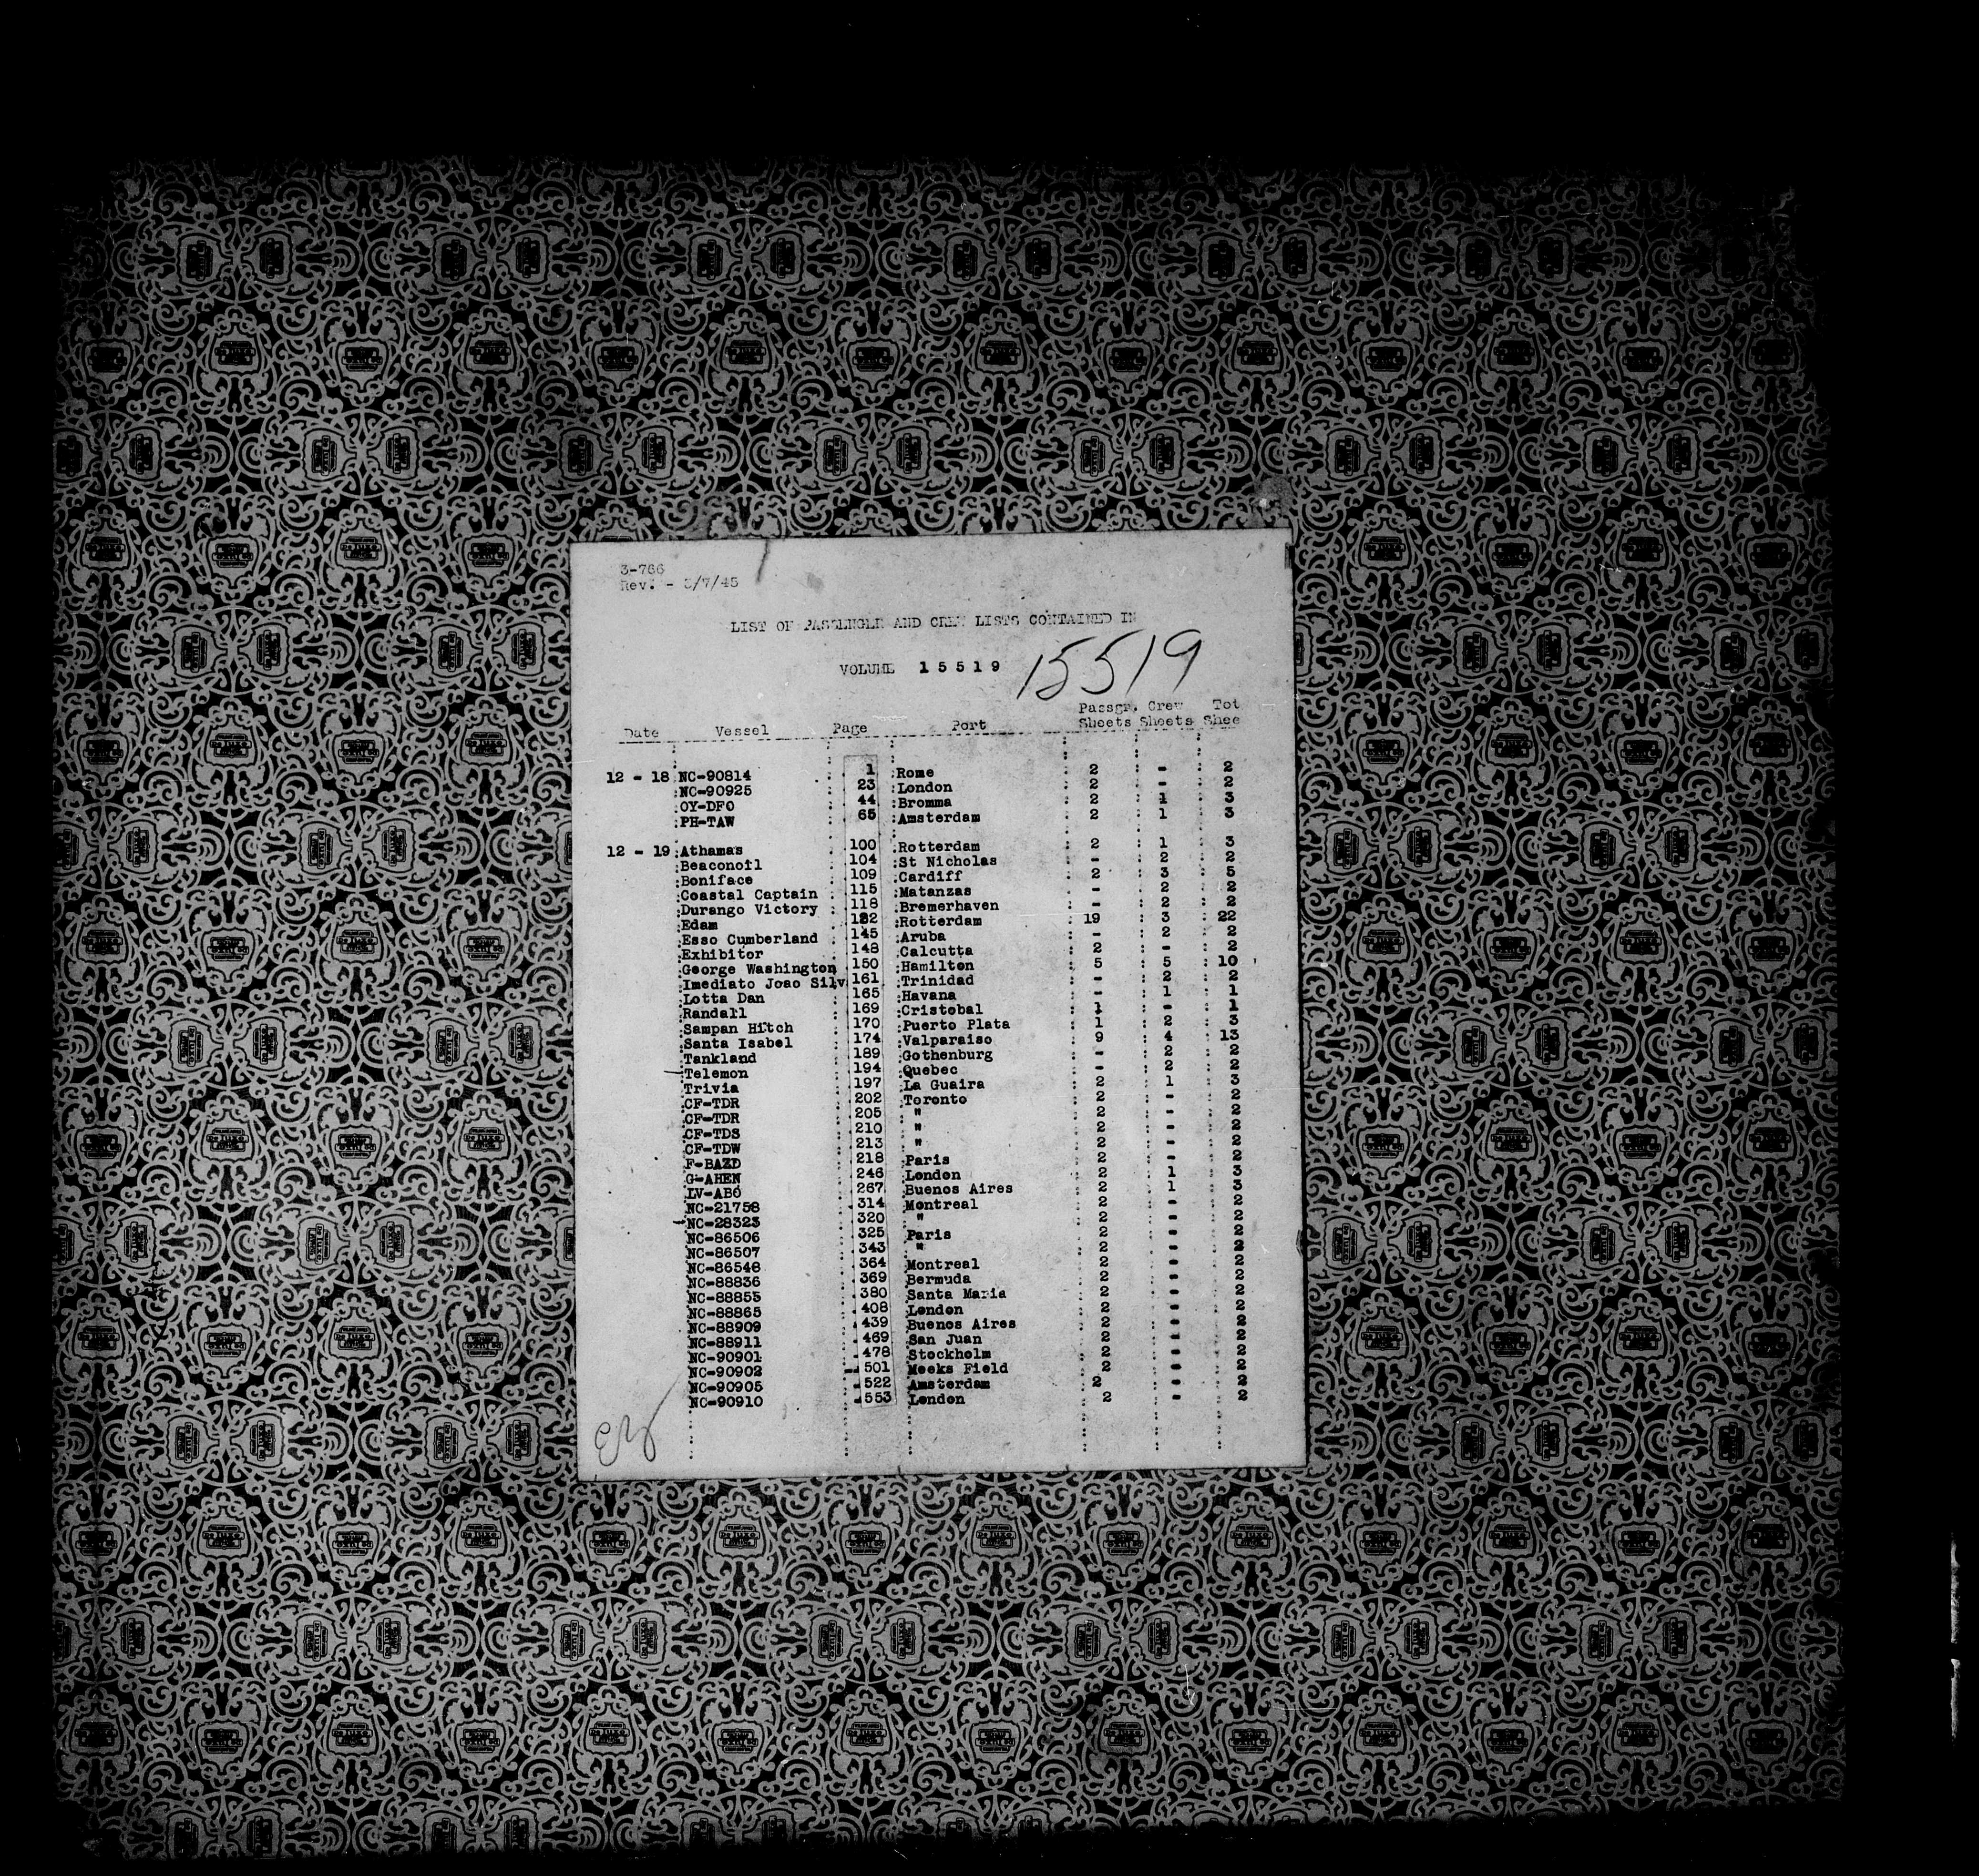 3-766
Rev. - 3/7/45
LIST OF PASSENGER AND CREW LISTS CONTAINED IN
VOLUME 15519 15519
Passgr. Crew Tot
Date Vessel Page Port Sheets Sheets Shee
12 - 18 :NC-90814 : 1 :Rome : 2 : - : 2
:NC-90925 : 23 :London : 2 : - : 2
:OY-DFO : 44 :Bromma : 2 : 1 : 3
:PH-TAW : 65 :Amsterdam : 2 : 1 : 3
12 - 19 :Athamas : 100 :Rotterdam : 2 : 1 : 3
:Beaconoil : 104 :St Nicholas : - : 2 : 2
:Boniface : 109 :Cardiff : 2 : 3 : 5
:Coastal Captain : 115 :Matanzas : - : 2 : 2
:Durango Victory : 118 :Bremerhaven : - : 2 : 2
:Edam : 122 :Rotterdam : 19 : 3 : 22
:Esso Cumberland : 145 :Aruba : - : 2 : 2
:Exhibitor : 148 :Calcutta : 2 : - : 2
:George Washington : 150 :Hamilton : 5 : 5 : 10
:Imediato Joao Silv 161 :Trinidad : - : 2 : 2
:Lotta Dan : 165 :Havana : - : 1 : 1
:Randall : 169 :Cristobal : 1 : - : 1
:Sampan Hitch : 170 :Puerto Plata : 1 : 2 : 3
:Santa Isabel : 174 :Valparaiso : 9 : 4 : 13
:Tankland : 189 :Gothenburg : - : 2 : 2
:Telemon : 194 :Quebec : - : 2 : 2
:Trivia : 197 :La Guaira : 2 : 1 : 3
:CF-TDR : 202 :Toronto : 2 : - : 2
:CF-TDR : 205 : " : 2 : - : 2
:CF-TDS : 210 : " : 2 : - : 2
:CF-TDW : 213 : " : 2 : - : 2
:F-BAZD : 218 :Paris : 2 : - : 2
:G-AHEN : 246 :London : 2 : 1 : 3
:LV-ABO : 267 :Buenos Aires : 2 : 1 : 3
:NC-21758 : 314 :Montreal : 2 : - : 2
:NC-28323 : 320 : " : 2 : - : 2
:NC-86506 : 325 :Paris : 2 : - : 2
:NC-86507 : 343 : " : 2 : - : 2
:NC-86548 : 364 :Montreal : 2 : - : 2
:NC-88836 : 369 :Bermuda : 2 : - : 2
:NC-88855 : 380 :Santa Maria : 2 : - : 2
:NC-88865 : 408 :London : 2 : - : 2
:NC-88909 : 439 :Buenos Aires : 2 : - : 2
:NC-88911 : 469 :San Juan : 2 : - : 2
:NC-90901 : 478 :Stockholm : 2 : - : 2
:NC-90902 : 501 :Meeks Field : 2 : - : 2
:NC-90905 : 522 :Amsterdam : 2 : - : 2
:NC-90910 : 553 :London : 2 : - : 2